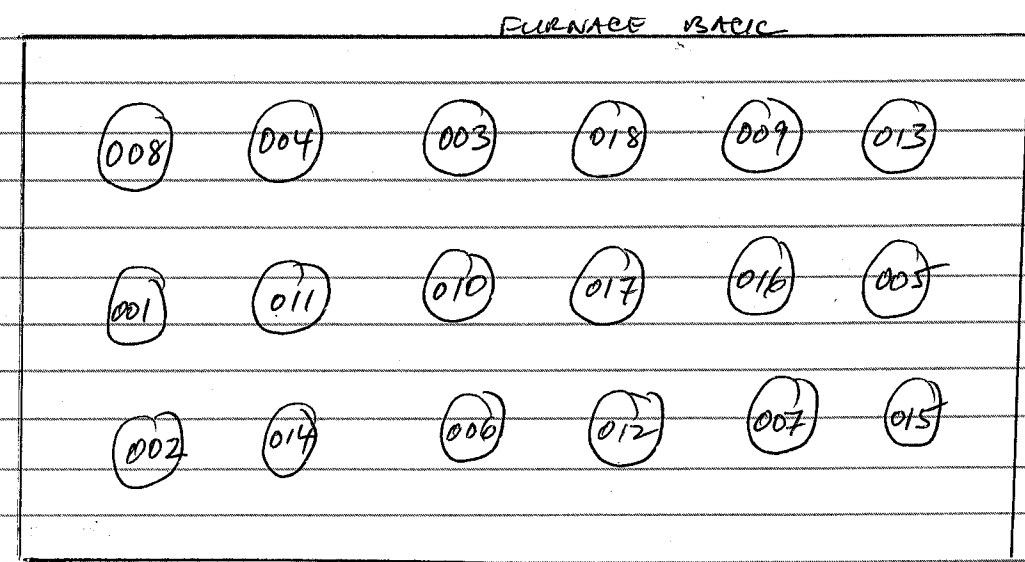 FURNACE BACK
008 004 003 018 009 013
001 011 010 017 016 005
002 014 006 012 007 015